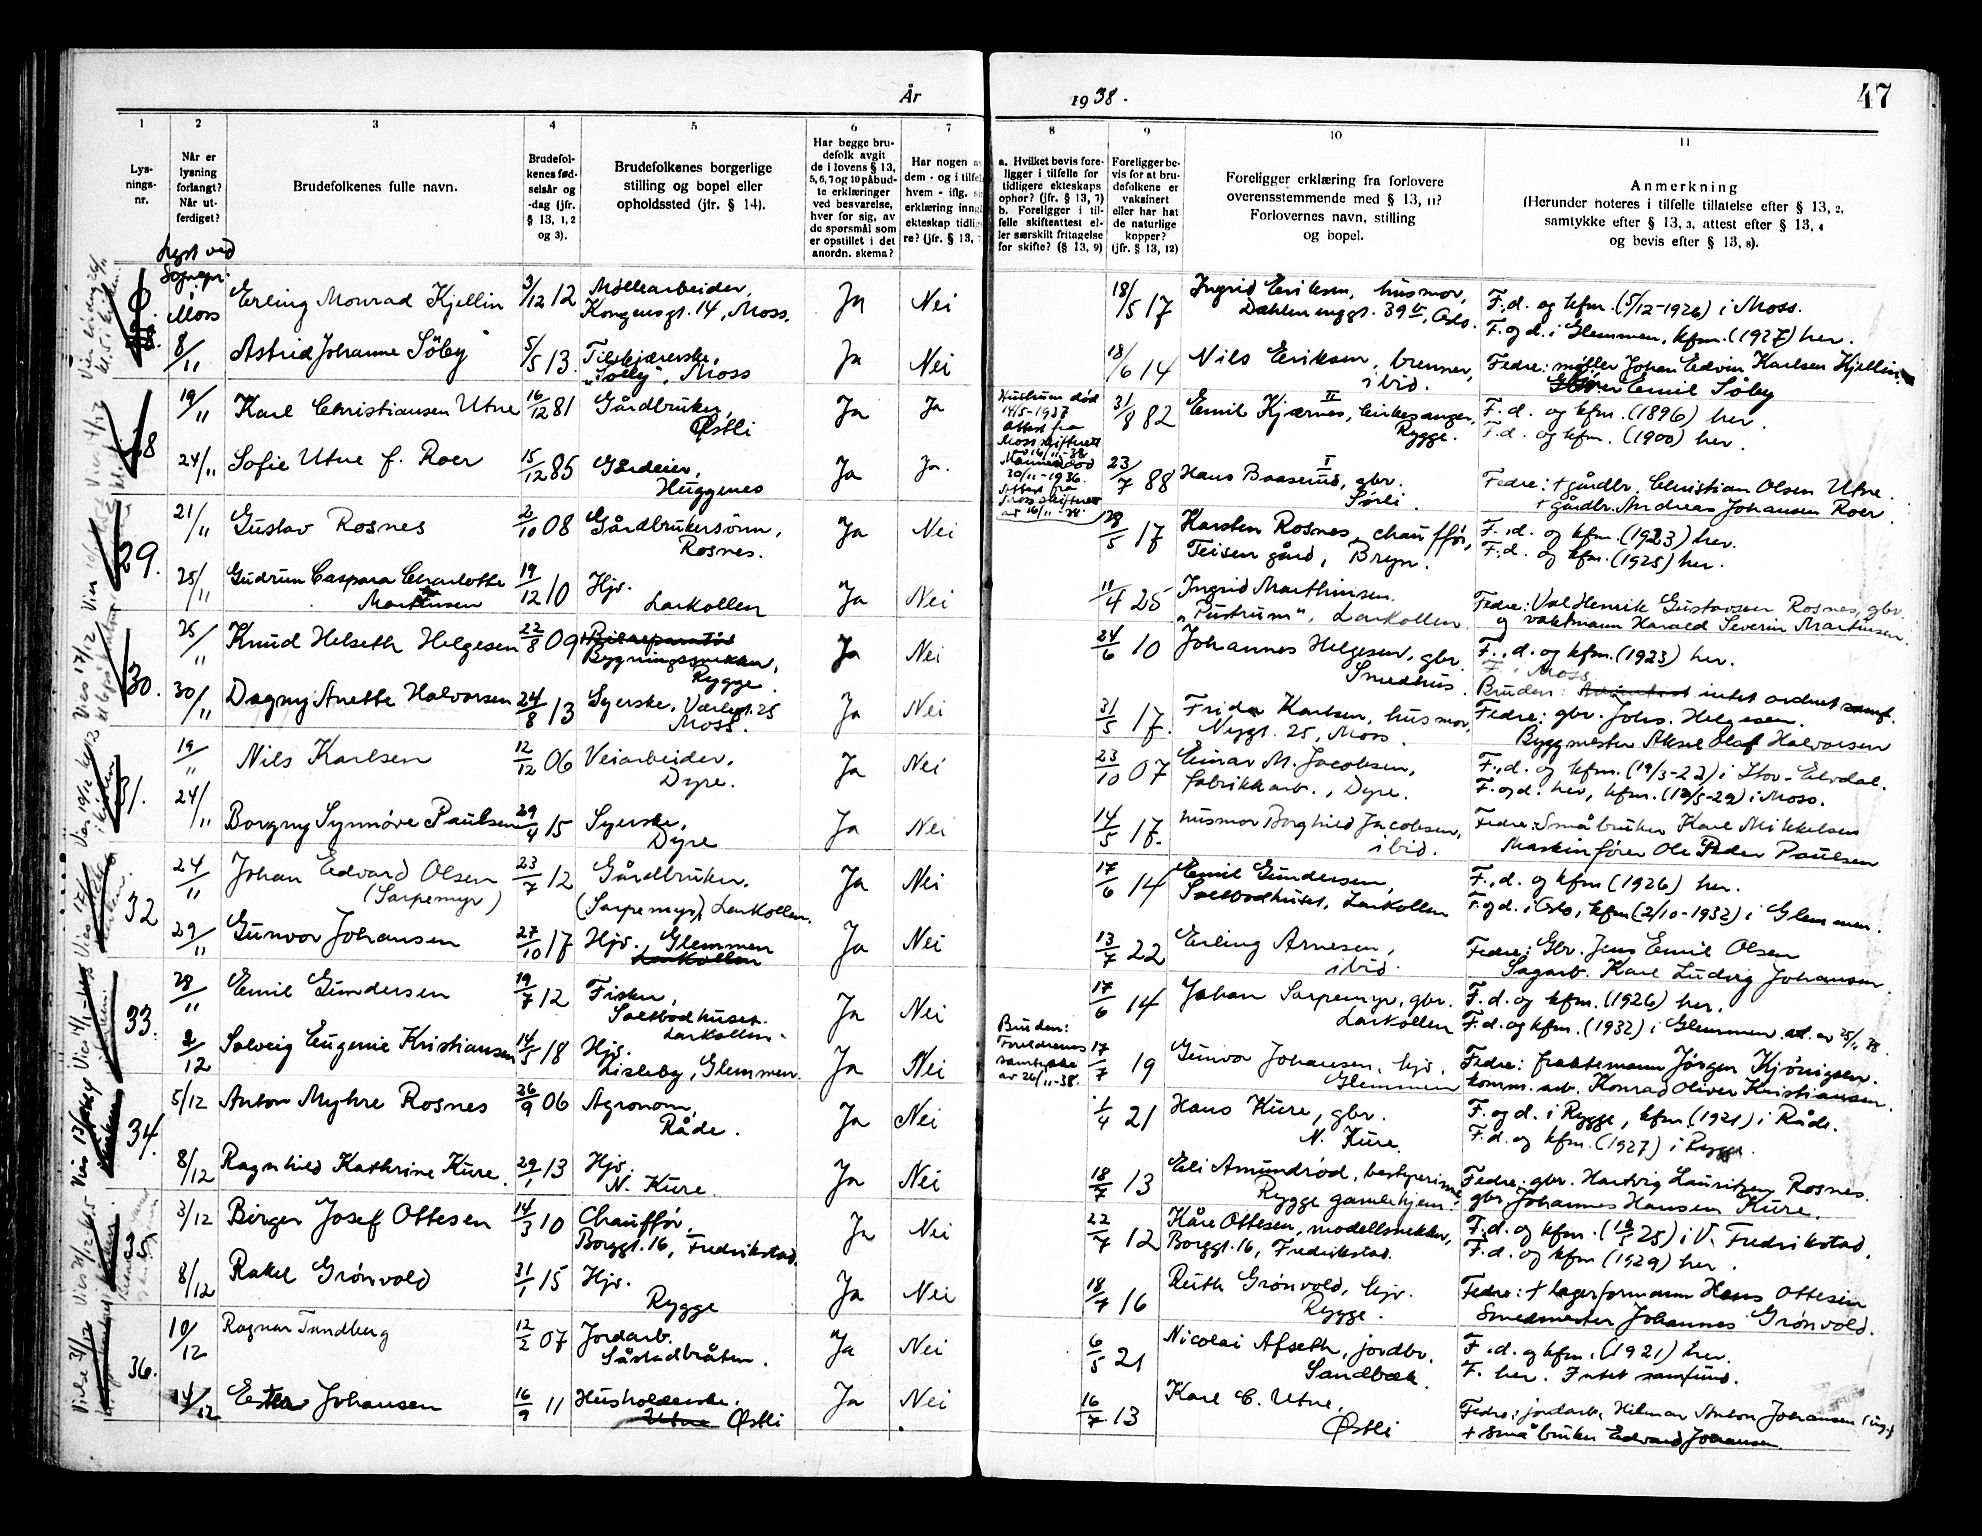 År 1938. 47
1 2 3 4 5 6 7 8 9 10 11
Lys-
nings-
nr.
Når er
lysning
forlangt?
Når ut-
ferdiget?
Brudefolkenes fulle navn.
Brudefol-
kenes fød-
selsår og
-dag (jfr.
§ 13, 1, 2
og 3).
Brudefolkenes borgerlige
stilling og bopel eller
opholdssted (jfr. § 14).
Har begge bru-
defolk avgit
de i lovens § 13,
5, 6, 7 og 10 påbud-
te erklæringer
ved besvarelse,
hver for sig, av
de spørsmål som
er opstillet i det
anordn. skema?
Har nogen a
dem - og i tilfel
hvem - iflg.
erklæring inng
ekteskap tidlig
re? (jfr. § 13,
a. Hvilket bevis fore-
ligger i tilfelle for
tidligere ekteskaps
ophør? (jfr. § 13, 7)
b. Foreligger i til-
felle skifteattest el-
ler særskilt fritagelse
for skifte? (§ 13, 9)
Foreligger be-
vis for at bru-
defolkene er
vaksinert
eller har hat
de naturlige
kopper?
(jfr. § 13, 12)
Foreligger erklæring fra forlovere
overensstemmende med § 13, 11?
Forlovernes navn, stilling
og bopel.
Anmerkning
(Herunder noteres i tilfelle tillatelse efter § 13, 2,
samtykke efter § 13, 3, attest efter § 13, 4
og bevis efter § 13, 8).
Lyst ved
Sognepr.
i
Moss
Erling Monrad Kjellin 3/12 12 Møllearbeider,
Kongensgt. 14, Moss. Ja Nei 18/5 17 Ingrid Eriksen, husmor,
Dæhlenenggt. 39 II, Oslo. F., d. og kfm. (5/12-1926) i Moss.
F. og d. i Glemmen, kfm. (1927) her.
8/11 Astrid Johanne Söby 5/5 13. Ja Nei 18/6 14 Nils Eriksen, brenner,
"Solby", Moss ibid. Fedre: møller Johan Edvin Karlsen Kjellin.
Emil Söby
28 19/11 Karl Christiansen Utne 16/12 81 Gårdbruker,
Østli Ja Ja Hustrum død
14/5-1937
Attest fra
Moss skifterett
16/11-38 31/8 82 Emil Kjærnes, kirkesanger,
Rygge. F. d. og kfm. (1896) her.
F. d. og kfm. (1900) her.
24/11 Sofie Utne f. Roer 15/12 85 Gårdeier,
Huggenes Ja Ja. Mannen død
30/11-1936.
Attest fra
Moss skifterett
av 16/11-38. 23/7 88 Hans Baaserud, gbr.
Sørli. Fedre: + gårdbr. Christian Olsen Utne.
+ gårdbr. Andreas Johansen Roer.
29. 21/11 Gustav Rosnes 2/10 08 Gårdbrukersønn,
Rosnes. Ja Nei 28/5 17 Karsten Rosnes, chauffør,
Teisen gård, Bryn. F., d. og kfm. (1923) her.
F. d. og kfm. (1925) her.
25/11 Gudrun Caspara Charlotte
Marthinsen 19/12 10 Hjv.
Larkollen Ja Nei 11/4 25 Ingrid Marthinsen.
"Furturum", Larkollen. Fedre: Val Henrik Gustavsen Rosnes, gbr.
og vaktmann Harald Severin Marthinsen.
30. 25/11 Knud Helseth Helgesen 22/8 09 Bilreparatör
Bygningssnekker,
Rygge. Ja Nei 24/6 10 Johannes Helgesen, gbr.
Smedhus. F., d. og kfm. (1923) her.
F. i Moss.
30/11 Dagny Anette Halvorsen 24/8 13 Syerske, Værlegt. 25
Moss. Ja Nei 31/5 17. Frida Karlsen, husmor,
Nygt. 25, Moss. Bruden: intet ordnet samf.
Fedre: gbr. Johs. Helgesen.
Byggmester Aksel Olaf Halvorsen
31. 19/11 Nils Karlsen 12/12 06 Veiarbeider,
Dyre. Ja Nei 23/10 07 Einar M. Jacobsen,
fabrikkarb., Dyre. F., d. og kfm. (19/3-22) i Stor-Elvdal.
F. og d. her, kfm. (12/5-29) i Moss.
24/11 Borgny Synnöve Paulsen 29/4 15 Syerske,
Dyre Ja Nei 14/5 17. husmor Borghild Jacobsen,
ibid. Fedre: Småbruker Karl Mikkelsen
Maskinfører Ole Peder Paulsen
32 24/11 Johan Edvard Olsen
(Sarpemyr) 23/7 12 Gårdbruker.
(Sarpemyr), Larkollen. Ja Nei 17/6 14 Emil Gundersen,
Saltbodhuset, Larkollen F., d. og kfm (1926) her.
F. og d. i Oslo, kfm (2/10-1932) i Glemmen.
29/11 Gunvor Johansen 27/10 17 Hjv. Glemmen
Larkollen Ja Nei 13/7 22 Erling Arnesen,
ibid. Fedre: Gbr. Jens Emil Olsen
Sagarb. Karl Ludvig Johansen.
33. 28/11 Emil Gundersen 19/7 12 Fisker,
Saltbodhuset.
Larkollen. Ja Nei 17/6 14 Johan Sarpemyr, gbr.
Larkollen F. d. og kfm. (1926) her.
F. d. og kfm. (1932) i Glemmen, att. av 25/11 38.
2/12 Solveig Eugenie Kristiansen 14/5 18 Hjv.
Lisleby, Glemmen. Ja Nei Bruden:
Foreldrenes
samtykke
av 26/11-38. 17/7 19 Gunvor Johansen, hjv.
Glemmen Fedre: fraktemann Jørgen Kjönigsen.
komm. arb. Konrad Oliver Kristiansen.
34. 5/12 Anton Myhre Rosnes 26/9 06 Agronom,
Råde. Ja Nei 1/4 21 Hans Kure, gbr.
N. Kure. F. og d. i Rygge, kfm. (1921) i Råde.
F. d. og kfm. (1927) i Rygge.
8/12 Ragnhild Kathrine Kure. 29/1 13 Hjv.
N. Kure. Ja Nei 18/7 13 Eli Amundrød, bestyrerinne
Rygge gamlehjem. Fedre: gbr. Hartvig Lauritzen Rosnes.
gbr. Johannes Hansen Kure.
35. 3/12 Birger Josef Ottesen 14/3 10 Chauffør,
Borggt. 16, Fredrikstad. Ja Nei 22/7 12 Kåre Ottesen, modellsnekker,
Borggt. 16, Fredrikstad. F. d. og kfm. (10/5 25) i V. Fredrikstad.
F. d. og kfm (1929) her.
8/12 Rakel Grönvold 31/1 15 Hjv.
Rygge Ja Nei 18/4 16 Ruth Grönvold, hjv.
Rygge. Fedre: + lagerformann Hans Ottesen
Smedmester Johannes Grönvold.
36. 10/12 Ragnar Tandberg 12/2 07 Jordarb.
Såstadbråten. Ja Nei 6/5 21 Nicolai Afseth, jordbr.
Sandbæk. F. d. og kfm. (1921) her.
F. her. Intet samfund.
14/12 Ester Johansen 16/9 11 Husholderske.
Utne Østli Ja Nei 16/7 13 Karl C. Utne,
Østli Fedre: jordarb. Hilmar Anton Johansen
+ småbruker Edvard Johansen.